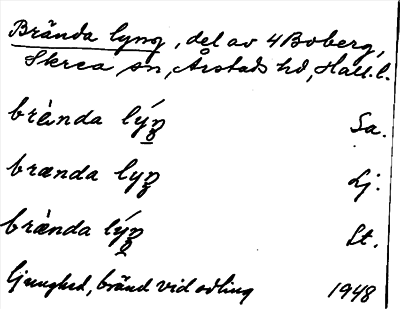 Brända lyng, del av 4 Boberg,
Skrea sn, Årstads hd, Hall. l.
brànda lýŋ Sa.
brænda lyŋ Lj.
brànda lýŋ St.
Ljunghed, bränd vid odling 1948